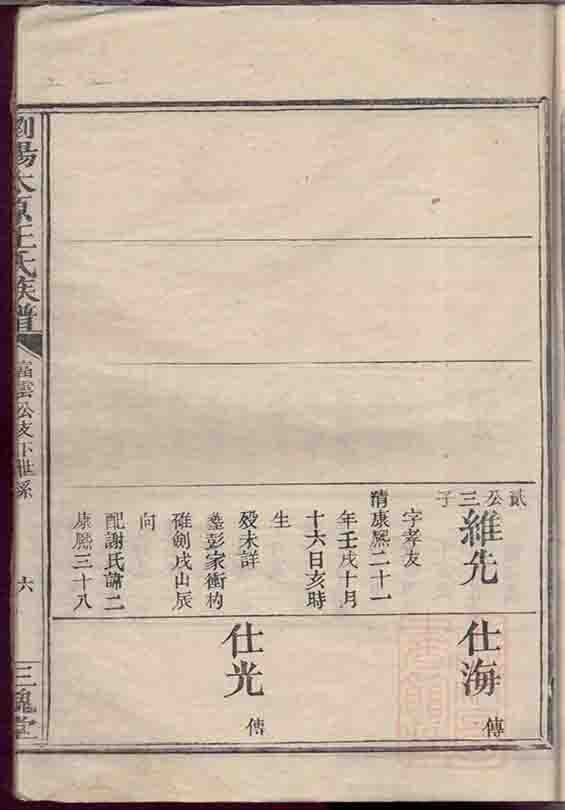 貳公三子
維先
字孝友
清康熙二十一
年壬戌十月
十六日亥時
生
歿未詳
葬彭家衝杓
碓劍戌山辰
向
配謝氏諱二
康熙三十八
仕海 傳
仕光 傳
瀏陽太原王氏族譜
富雲公支下世系
六
三槐堂